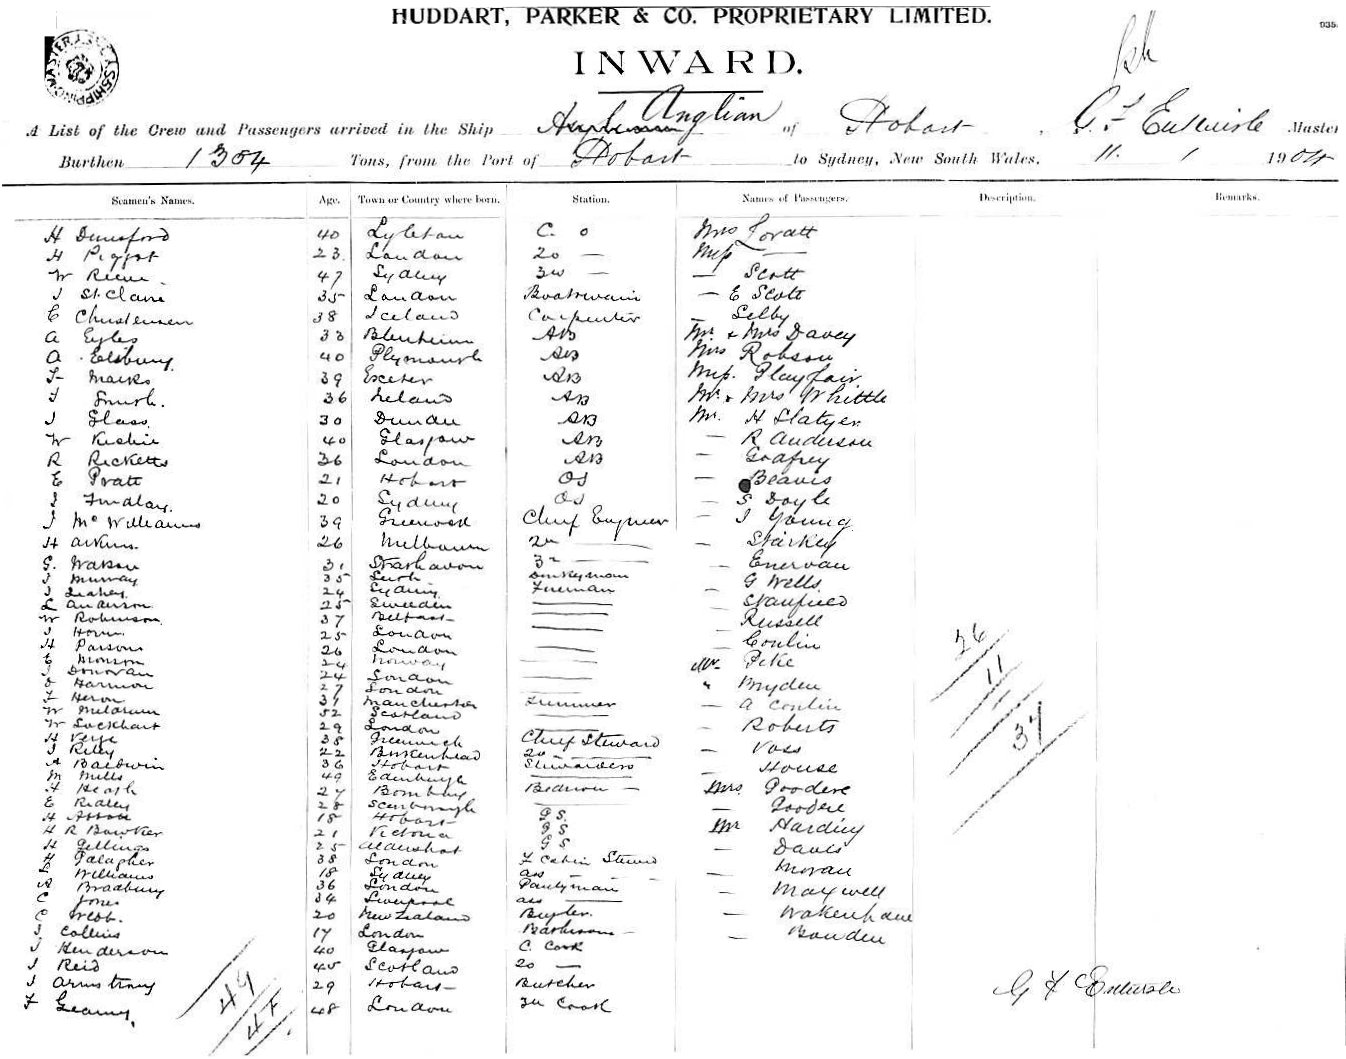 HUDDART, PARKER & CO. PROPRIETARY LIMITED.
935
INWARD.
A List of the Crew and Passengers arrived in the Ship Anglian of Hobart, G. F Entwisle Master
Burthen 1304 Tons, from the Port of Hobart to Sydney, New South Wales, 11. 1 1904
Seamen's Names. Age. Town or Country where born. Station. Names of Passengers. Description. Remarks.
H Dunsford 40 Lyleton C. o Mrs Lovatt
H Piggot 23 London 2o — Miss —
W 47 Sydney 3o — — Scott
J St. Claire 35 London Boatswain — E Scott
C Christensen 38 Iceland Carpenter — Selby
A Eyles 33 Blenheim AB Mr & Mrs Davey
A Elsbury 40 Plymouth AB Mrs Robson
F Marks 39 Exeter AB Miss Playfair
J Smith. 36 Ireland AB Mr & Mrs Whittle
J Glass 30 Dundee AB Mr. H Slatyer
W 40 Glasgow AB — R Anderson
R Ricketts 36 London AB — Godfrey
E Pratt 21 Hobart OS — Beavis
J Findlay. 20 Sydney OS — S Doyle
J McWilliams 39 Greenock Chief Engineer — J Young
H Aikins. 26 Melbourne 2n — — Starkey
G. Watson 31 Strathavon 3rd — —
J Murray 35 Leith Donkeyman — G Wells
J Leahey 24 Sydney Fireman — Stanfield
L Anderson 25 Sweeden — Russell
W Robinson 37 Belfast — Conlin
J Horn 25 London — Mr Pike
H Parsons 26 London — " Bryden
E Monson 24 Norway — — A Conlin
J Donovan 24 London — — Roberts
J Harmon 27 London — — Voss
F Heron 31 Manchester Trimmer — House
W Meldrum 52 Scotland — Mrs Goodere
W Lockhart 29 London — — Goodere
H Verge 38 Greenwich Chief Steward Mr Harding
J Riley 22 Birkenhead 2o — — Davis
A Baldwin 36 Hobart Stewardess — Moran
M Mills 49 Edinburgh — — Maxwell
H Heath 27 Bombay Bedroom — —
E Ridley 28 Scarborough — — Bowden
H 18 Hobart GS.
H R Bowker 21 Victoria GS
H Gellings 25 Aldershot GS
H Galagher 38 London F Cabin Steward
L Williams 18 Sydney ass —
A Bradbury 36 London Pantryman
C Jones 34 Liverpool ass —
C Webb. 20 New Zealand
J Collins 17 London Bathroom —
J Henderson 40 Glasgow C. Cook
J Reid 45 Scotland 2o —
J Armstrong 29 Hobart Butcher
F Geamy. 48 London 3rd Cook
26
11
37
49
G F Entwisle